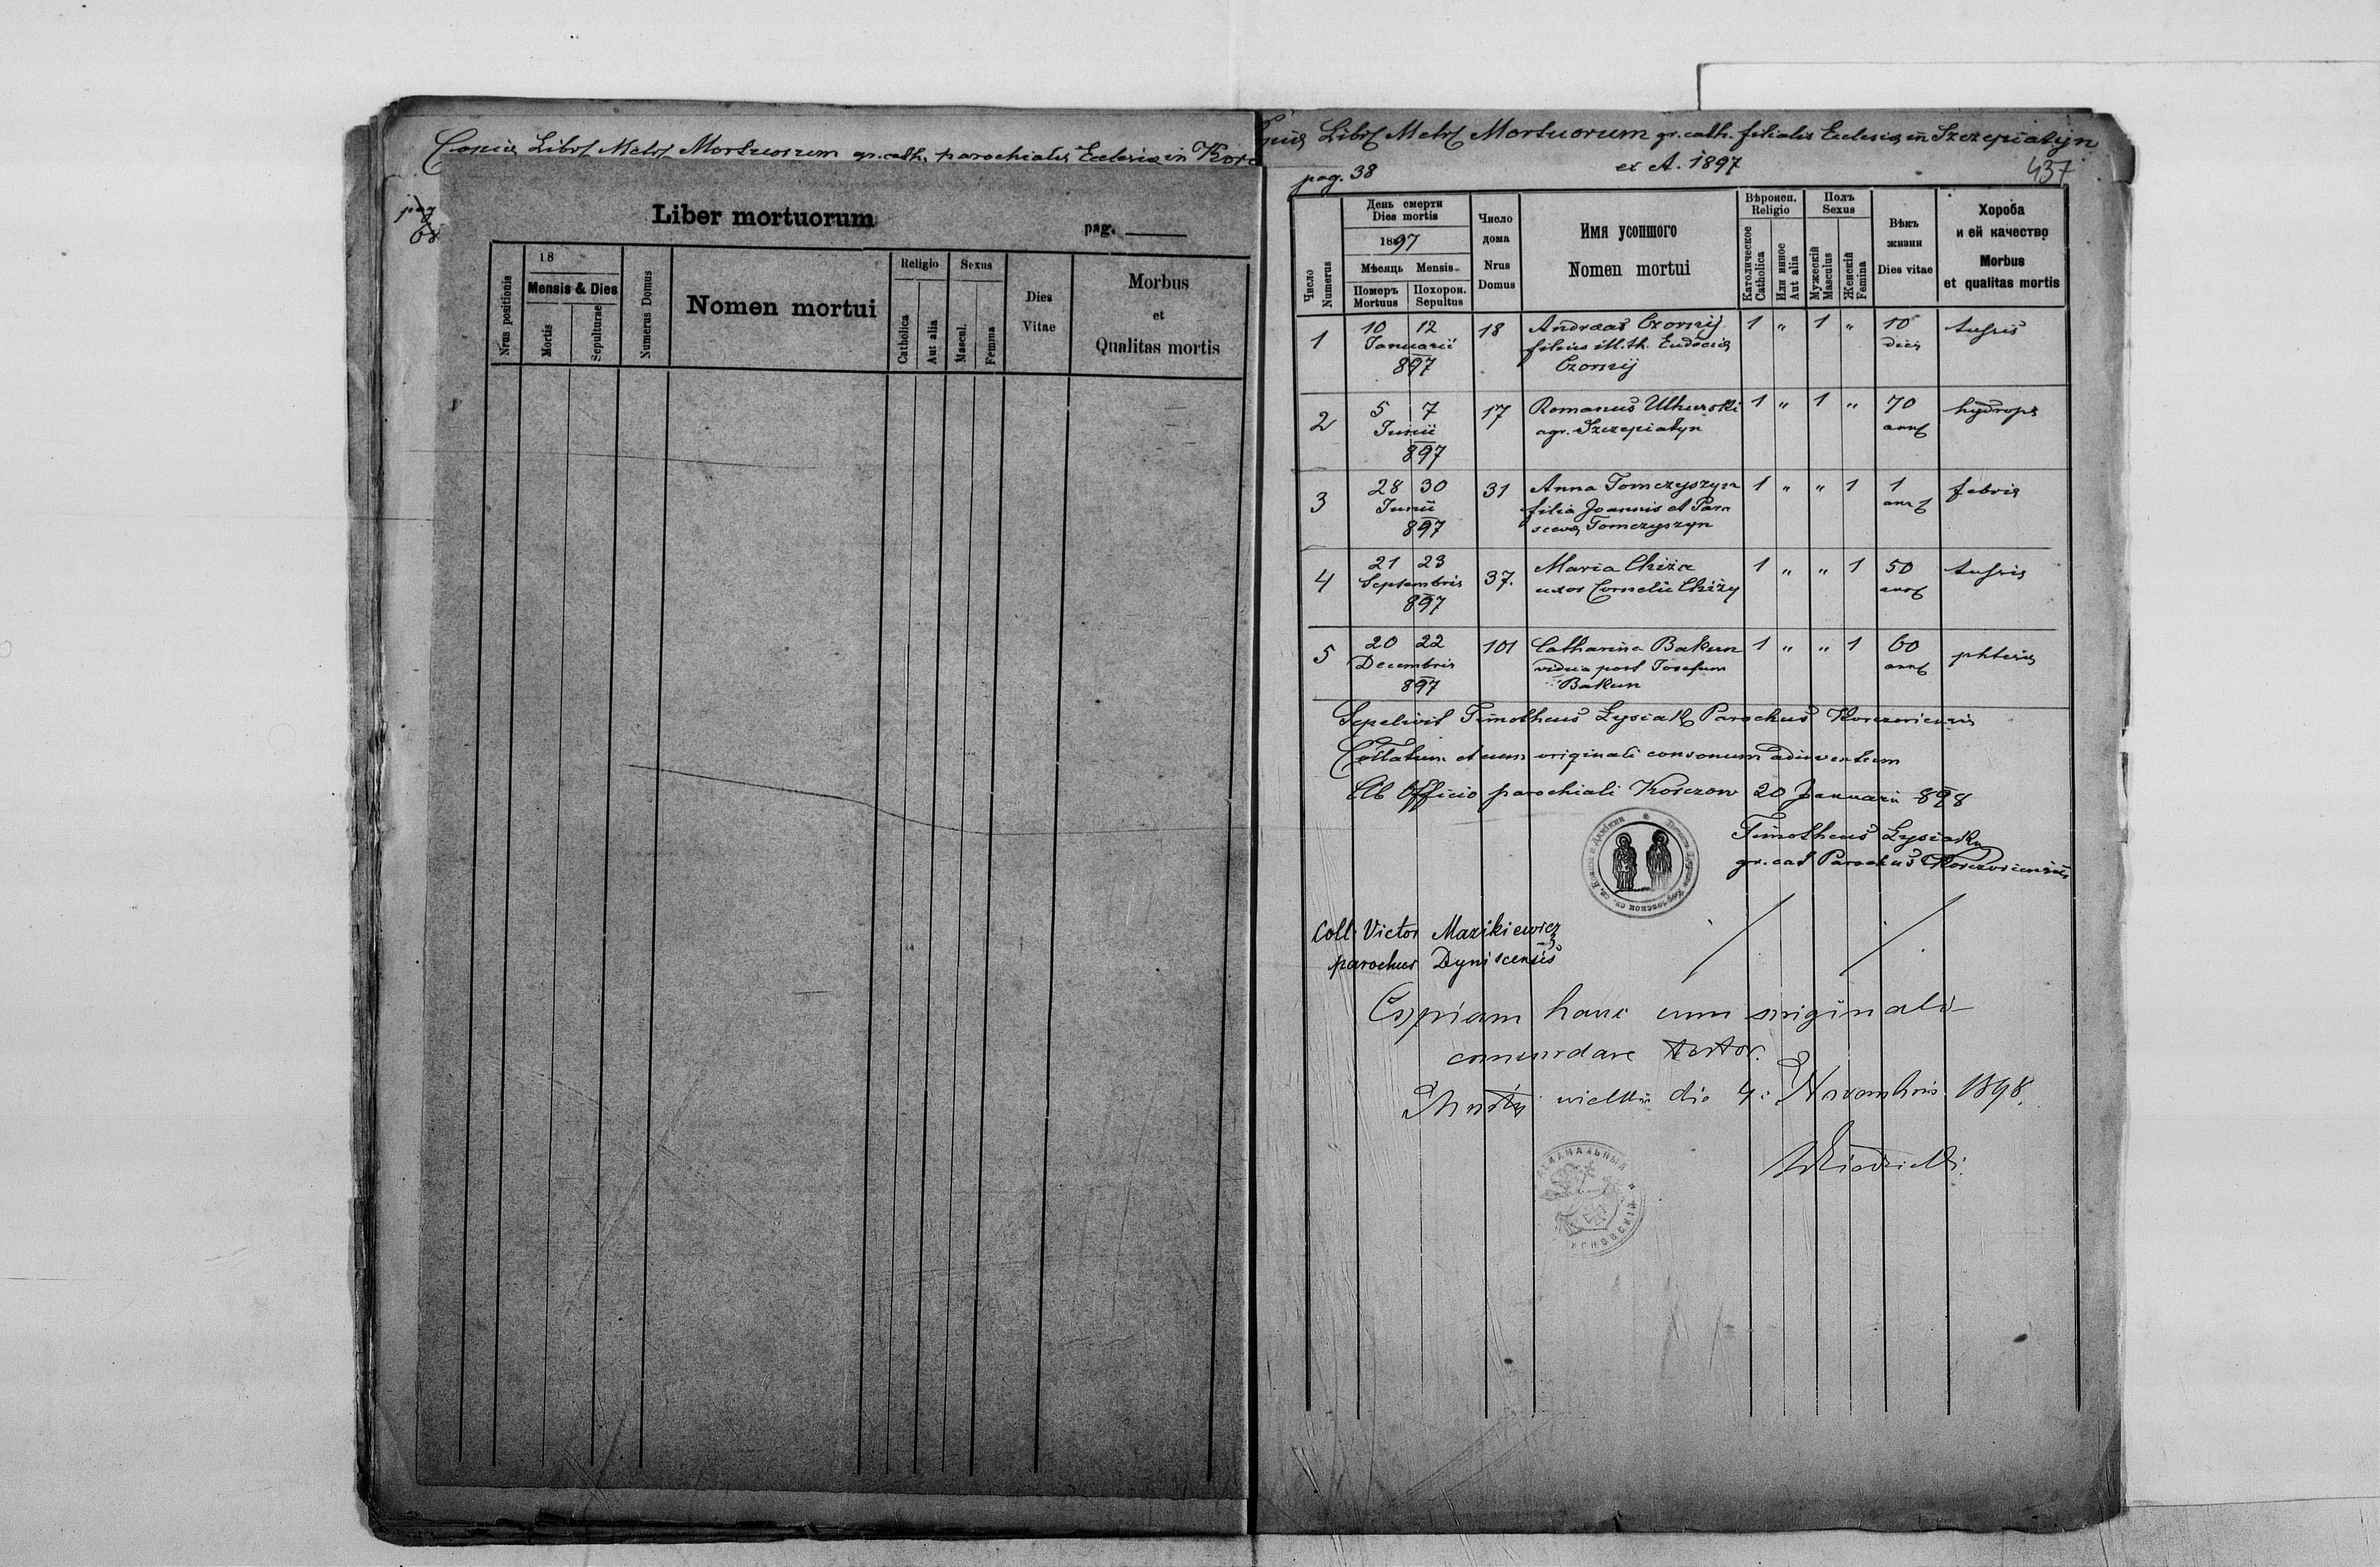 Copia Libri Metr Mortuorum gr. cath. parochialis Ecclesiae in Korc
pag
Liber mortuorum
pag.
Nrus positionis
18
Mensis & Dies
Mortis
Sepulturae
Numerus Domus
Nomen mortui
Religio
Catholica
Aut alia
Sexus
Mascul.
Femina
Dies
Vitae
Morbus
et
Qualitas mortis
Libri Metr Mortuorum gr. cath. filialis Ecclesiae in Szczepiatyn
ex A. 1897
pag. 38
437
Число
Numerus
День смерти
Dies mortis
1897
Мѣсяць Mensis
Померъ
Mortuus
Похорон.
Sepultus
Число
дома
Nrus
Domus
Имя усопшого
Nomen mortui
Вѣроисп.
Religio
Католическое
Catholica
Или инное
Aut alia
Полъ
Sexus
Мужескій
Masculus
Женскій
Femina
Вѣкъ
жизни
Dies vitae
Хороба
и ей качество
Morbus
et qualitas mortis
1 10 12 18 Andreas Czornij 1 " 1 " 10 tussis
Januarii filius ill. th. Eudociae dies
897 Czornij
2 5 7 17 Romanus Uhurski 1 " 1 " 70 hydrops
Junii agr. Szczepiatyn ann
897
3 28 30 31 Anna Tomczyszyn 1 " " 1 1 febris
Junii filia Joannis et Para
897 scevae Tomczyszyn
4 21 23 37. Maria Chiza 1 " " 1 50 tussis
Septembris uxor Cornelii Chizy
897
5 20 22 101 Catharina Bakun 1 " " 1 60 phtisis
Decembris vidua post Josefum
897 Bakun
Sepelivit Timotheus Łysiak Parochus Korczoviensis
Collatum et cum originali consonum adinventum
Ab Officio parochiali Korczow 20 Januarii 898
Timotheus Łysiak
gr. cat Parochus Korczoviensis
Coll. Victor Mazikiewicz
parochus Dyniscensis
Copiam hanc cum originali
concordare testor.
die 4. Novembris 1898.